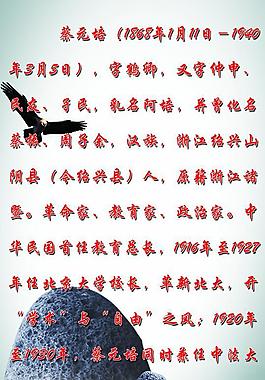 蔡元培（1868年1月11日－1940
年3月5日），字鹤卿，又字仲申、
民友、孑民，乳名阿培，并曾化名
蔡振、周子余，汉族，浙江绍兴山
阴县（今绍兴县）人，原籍浙江诸
暨。革命家、教育家、政治家。中
华民国首任教育总长，1916年至1927
年任北京大学校长，革新北大，开
“学术”与“自由”之风；1920年
至1930年，蔡元培同时兼任中法大